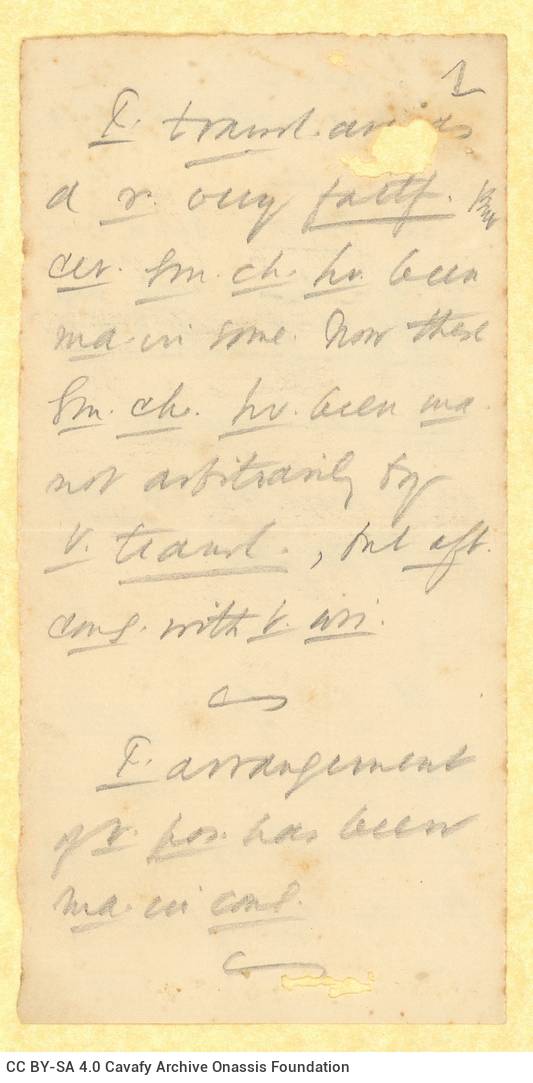 1
T. transl. an is
d r. very faitf. But
cer. sm. ch. hv. been
ma. in some. Now these
sm. ch. hv. been ma.
not arbitrarily by
t. transl., but aft.
cons. with t. wri.
T. arrangement
of t. po. has been
ma. in cons.
CC BY-SA 4.0 Cavafy Archive Onassis Foundation